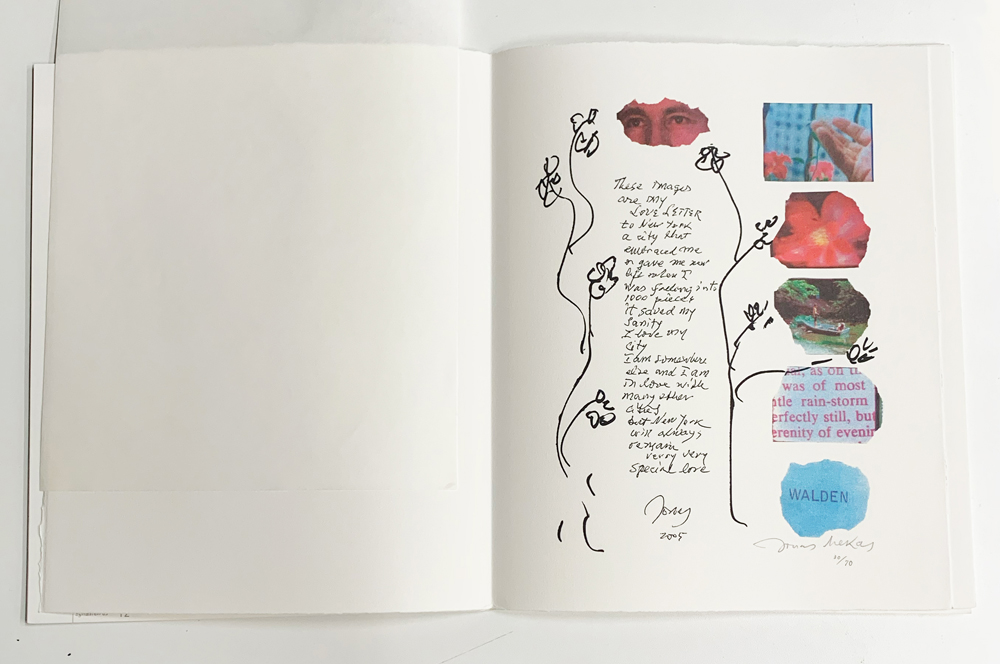 These images
are my
LOVE LETTER
to New York
a city that
embraced me
gave me new
life when I
was falling into
1000 pieces
it saved my
Sanity
I love my
City
I am somewhere
else and I am
in love with
many other
cities
but New York
will always
remain
verry very
special love
Jonas
2005
as on th
was of most
ntle rain-storm
erfectly still, but
erenity of evenin
WALDEN
Jonas Mekas
/70